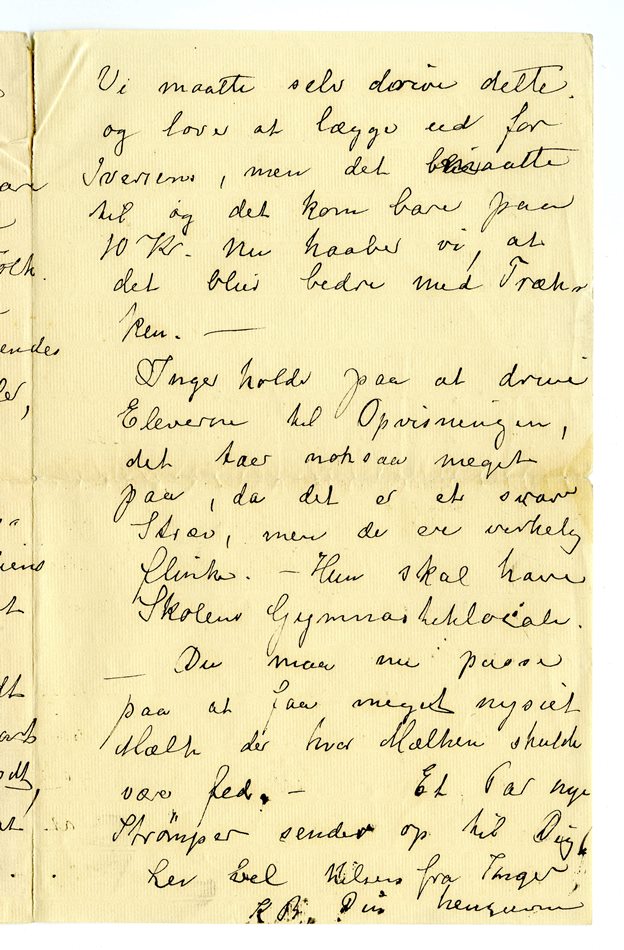 Vi maatte selv drive dette
og love at lægge ud for
Iversens, men det maatte
til og det kom bare paa
10 Kr. Nu haaber vi, at
det bliver bedre med Træk-
ken. —
Inger holder paa at drive
Eleverne til Opvisningen,
det taer noksaa meget
paa, da det er et svare
Stræv, men de ere virkelig
flinke. — Hun skal have
Skolens Gymnastiklocale.
— Du maa nu passe
paa at faa meget nysiet
Mælk der hvor Mælken skulde
være fed. — Et Par nye
Strømper sendes op til Dig.
Lev vel Hilsen fra Inger,
Din hengivne